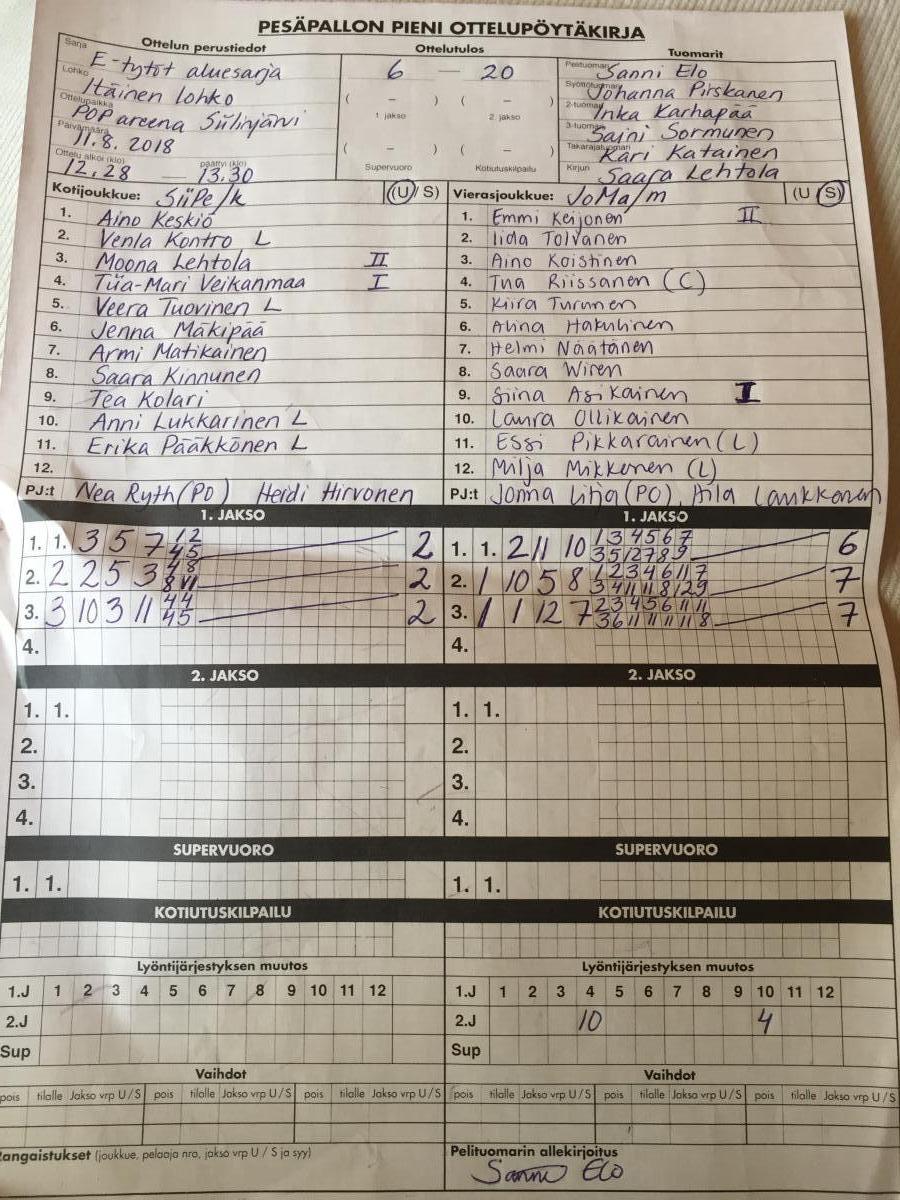 PESÄPALLON PIENI OTTELUPÖYTÄKIRJA
Ottelun perustiedot Ottelutulos Tuomarit
Sarja E-tytöt aluesarja
Lohko Itäinen lohko
Ottelupaikka POP areena Siilinjärvi
Päivämäärä 11.8. 2018
Ottelu alkoi (klo) 12.28 — päättyi (klo) 13.30
6 — 20
( – ) ( – )
1. jakso 2. jakso
( – ) ( – )
Supervuoro Kotiutuskilpailu
Pelituomari Sanni Elo
Syöttötuomari Johanna Pirskanen
2-tuomari Inka Karhapää
3-tuomari Saini Sormunen
Takarajatuomari Kari Katainen
Kirjuri Saara Lehtola
Kotijoukkue: SiiPe/k (U/S)
1. Aino Keskiö
2. Venla Kontro L
3. Moona Lehtola II
4. Tiia-Mari Veikanmaa I
5. Veera Tuovinen L
6. Jenna Mäkipää
7. Armi Matikainen
8. Saara Kinnunen
9. Tea Kolari
10. Anni Lukkarinen L
11. Erika Pääkkönen L
12.
PJ:t Nea Ryth (PO) Heidi Hirvonen
Vierasjoukkue: JoMa/m (U/S)
1. Emmi Keijonen II
2. Iida Tolvanen
3. Aino Koistinen
4. Tua Riissanen (C)
5. Kiira Turunen
6. Alina Hakulinen
7. Helmi Näätänen
8. Saara Wiren
9. Siina Asikainen I
10. Laura Ollikainen
11. Essi Pikkarainen (L)
12. Milja Mikkonen (L)
PJ:t Jonna Lilja (PO), Aila Laukkanen
1. JAKSO 1. JAKSO
1. 1. 3 5 7 2
2. 2 2 5 3 2
3. 3 10 3 11 44 45 2
4.
1. 1. 2 11 10 1 3 4 5 6 7 6
2. 1 10 5 8 7
3. 1 1 12 7 2 3 4 5 6 11 11 7
4.
2. JAKSO 2. JAKSO
1. 1. 1. 1.
2. 2.
3. 3.
4. 4.
SUPERVUORO SUPERVUORO
1. 1. 1. 1.
KOTIUTUSKILPAILU KOTIUTUSKILPAILU
Lyöntijärjestyksen muutos Lyöntijärjestyksen muutos
1.J 1 2 3 4 5 6 7 8 9 10 11 12 1.J 1 2 3 4 5 6 7 8 9 10 11 12
2.J 2.J 10 4
Sup Sup
Vaihdot Vaihdot
pois tilalle Jakso vrp U/S pois tilalle Jakso vrp U/S pois tilalle Jakso vrp U/S pois tilalle Jakso vrp U/S pois tilalle Jakso vrp U/S pois tilalle Jakso vrp U/S
Rangaistukset (joukkue, pelaaja nro, jakso vrp U / S ja syy) Pelituomarin allekirjoitus
Sanni Elo